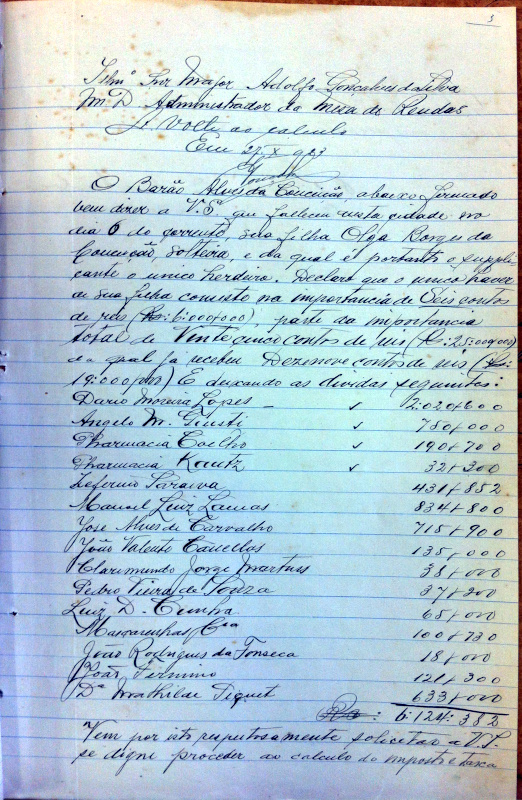 3
Illmº Snr Major Adolfo Gonçalves da Silva
M. D. Administrador da Mesa de Rendas
Volte ao calculo
Em 27 X 923
O Barão Alves da Conceição, abaixo firmado
vem dizer a V. Sª que falleceu nesta cidade no
dia 6 do corrente, sua filha Olga Borges da
Conceição, solteira, e da qual é portanto o suppli
cante o unico herdeiro. Declara que o unico haver
de sua filha consiste na importancia de Seis contos
de reis (Rs: 6:000$000), parte da importancia
total de Vinte cinco contos de reis (Rs: 25:000$000)
da qual já recebeu Dezenove contos de reis (Rs:
19:000$000) E deixando as dividas seguintes:
Dario Moreira Lopes – ✓ 2:020$600
Angelo M. Giusti ✓ 750$000
Pharmacia Coelho ✓ 190$700
Pharmacia Kautz ✓ 32$300
Zeferino Saraiva 431$852
Manoel Luiz Lamas 834$800
José Alves de Carvalho 715$900
João Valente Cancellas 135$000
Clarimundo Jorge Martins 38$000
Pedro Vieira de Souza 37$200
Luiz D. Cunha 65$000
Mascarenhas Cia 100$730
João Rodrigues da Fonseca 18$000
João Firmino 121$300
Dª Mathilde Piquet 633$000
Rs: 6:124:382
Vem por isto respeitosamente solicitar a V. S.
se digne proceder ao calculo do imposto e taxa